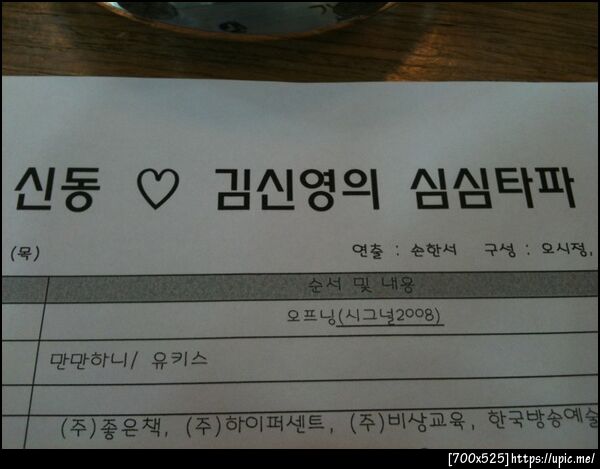 신동 ♡ 김신영의 심심타파
(목) 연출 : 손한서 구성 : 오시정,
순서 및 내용
오프닝(시그널2008)
만만하니/ 유키스
(주)좋은책, (주)하이퍼센트, (주)비상교육, 한국방송예술
[700x525]https://upic.me/